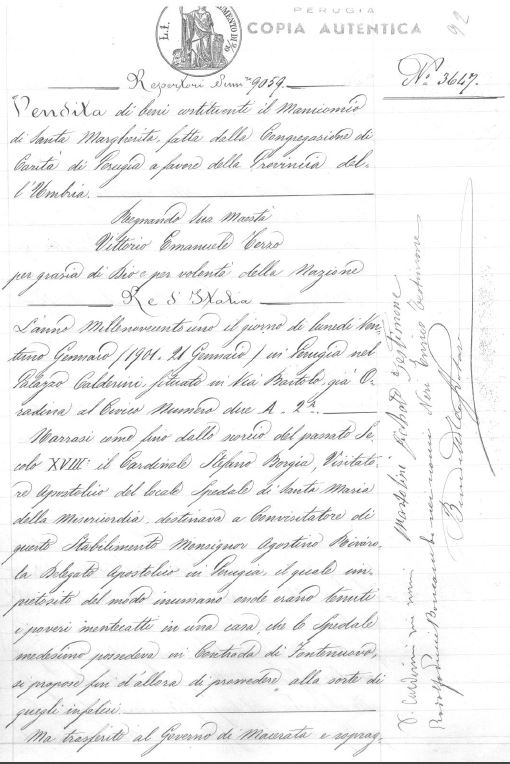 PERUGIA
COPIA AUTENTICA
92
Repertori Num. 9059.
N.° 3647.
Vendita di beni costituente il Manicomio
di Santa Margherita, fatta dalla Congregazione di
Carità di Perugia a favore della Provincia del-
l'Umbria.
Regnando Sua Maestà
Vittorio Emanuele Terzo
per grazia di Dio e per volontà della Nazione
Re d'Italia
L'anno Millenovecento uno il giorno di lunedì Ven-
tuno Gennaio /1901. 21 Gennaio/ in Perugia nel
Palazzo Calderini, situato in Via Bartolo, già O-
radina al Civico Numero due A. 2A.
Narrasi come fino dallo scorcio del passato Se-
colo XVIII: il Cardinale Stefano Borgia, Visitato-
re Apostolico del locale Spedale di Santa Maria
della Misericordia, destinava a Convisitatore di
questo Stabilimento Monsignor Agostino Rivaro-
la Delegato Apostolico in Perugia, il quale im-
pietosito del modo inumano onde erano tenuti
i poveri mentecatti in una casa, che lo Spedale
medesimo possedeva in Contrada di Fontenuovo,
si propose fin d'allora di provvedere alla sorte di
quegli infelici.
Ma trasferito al Governo di Macerata e soprag-
Calderini
Testimone
Neri Enrico testimone